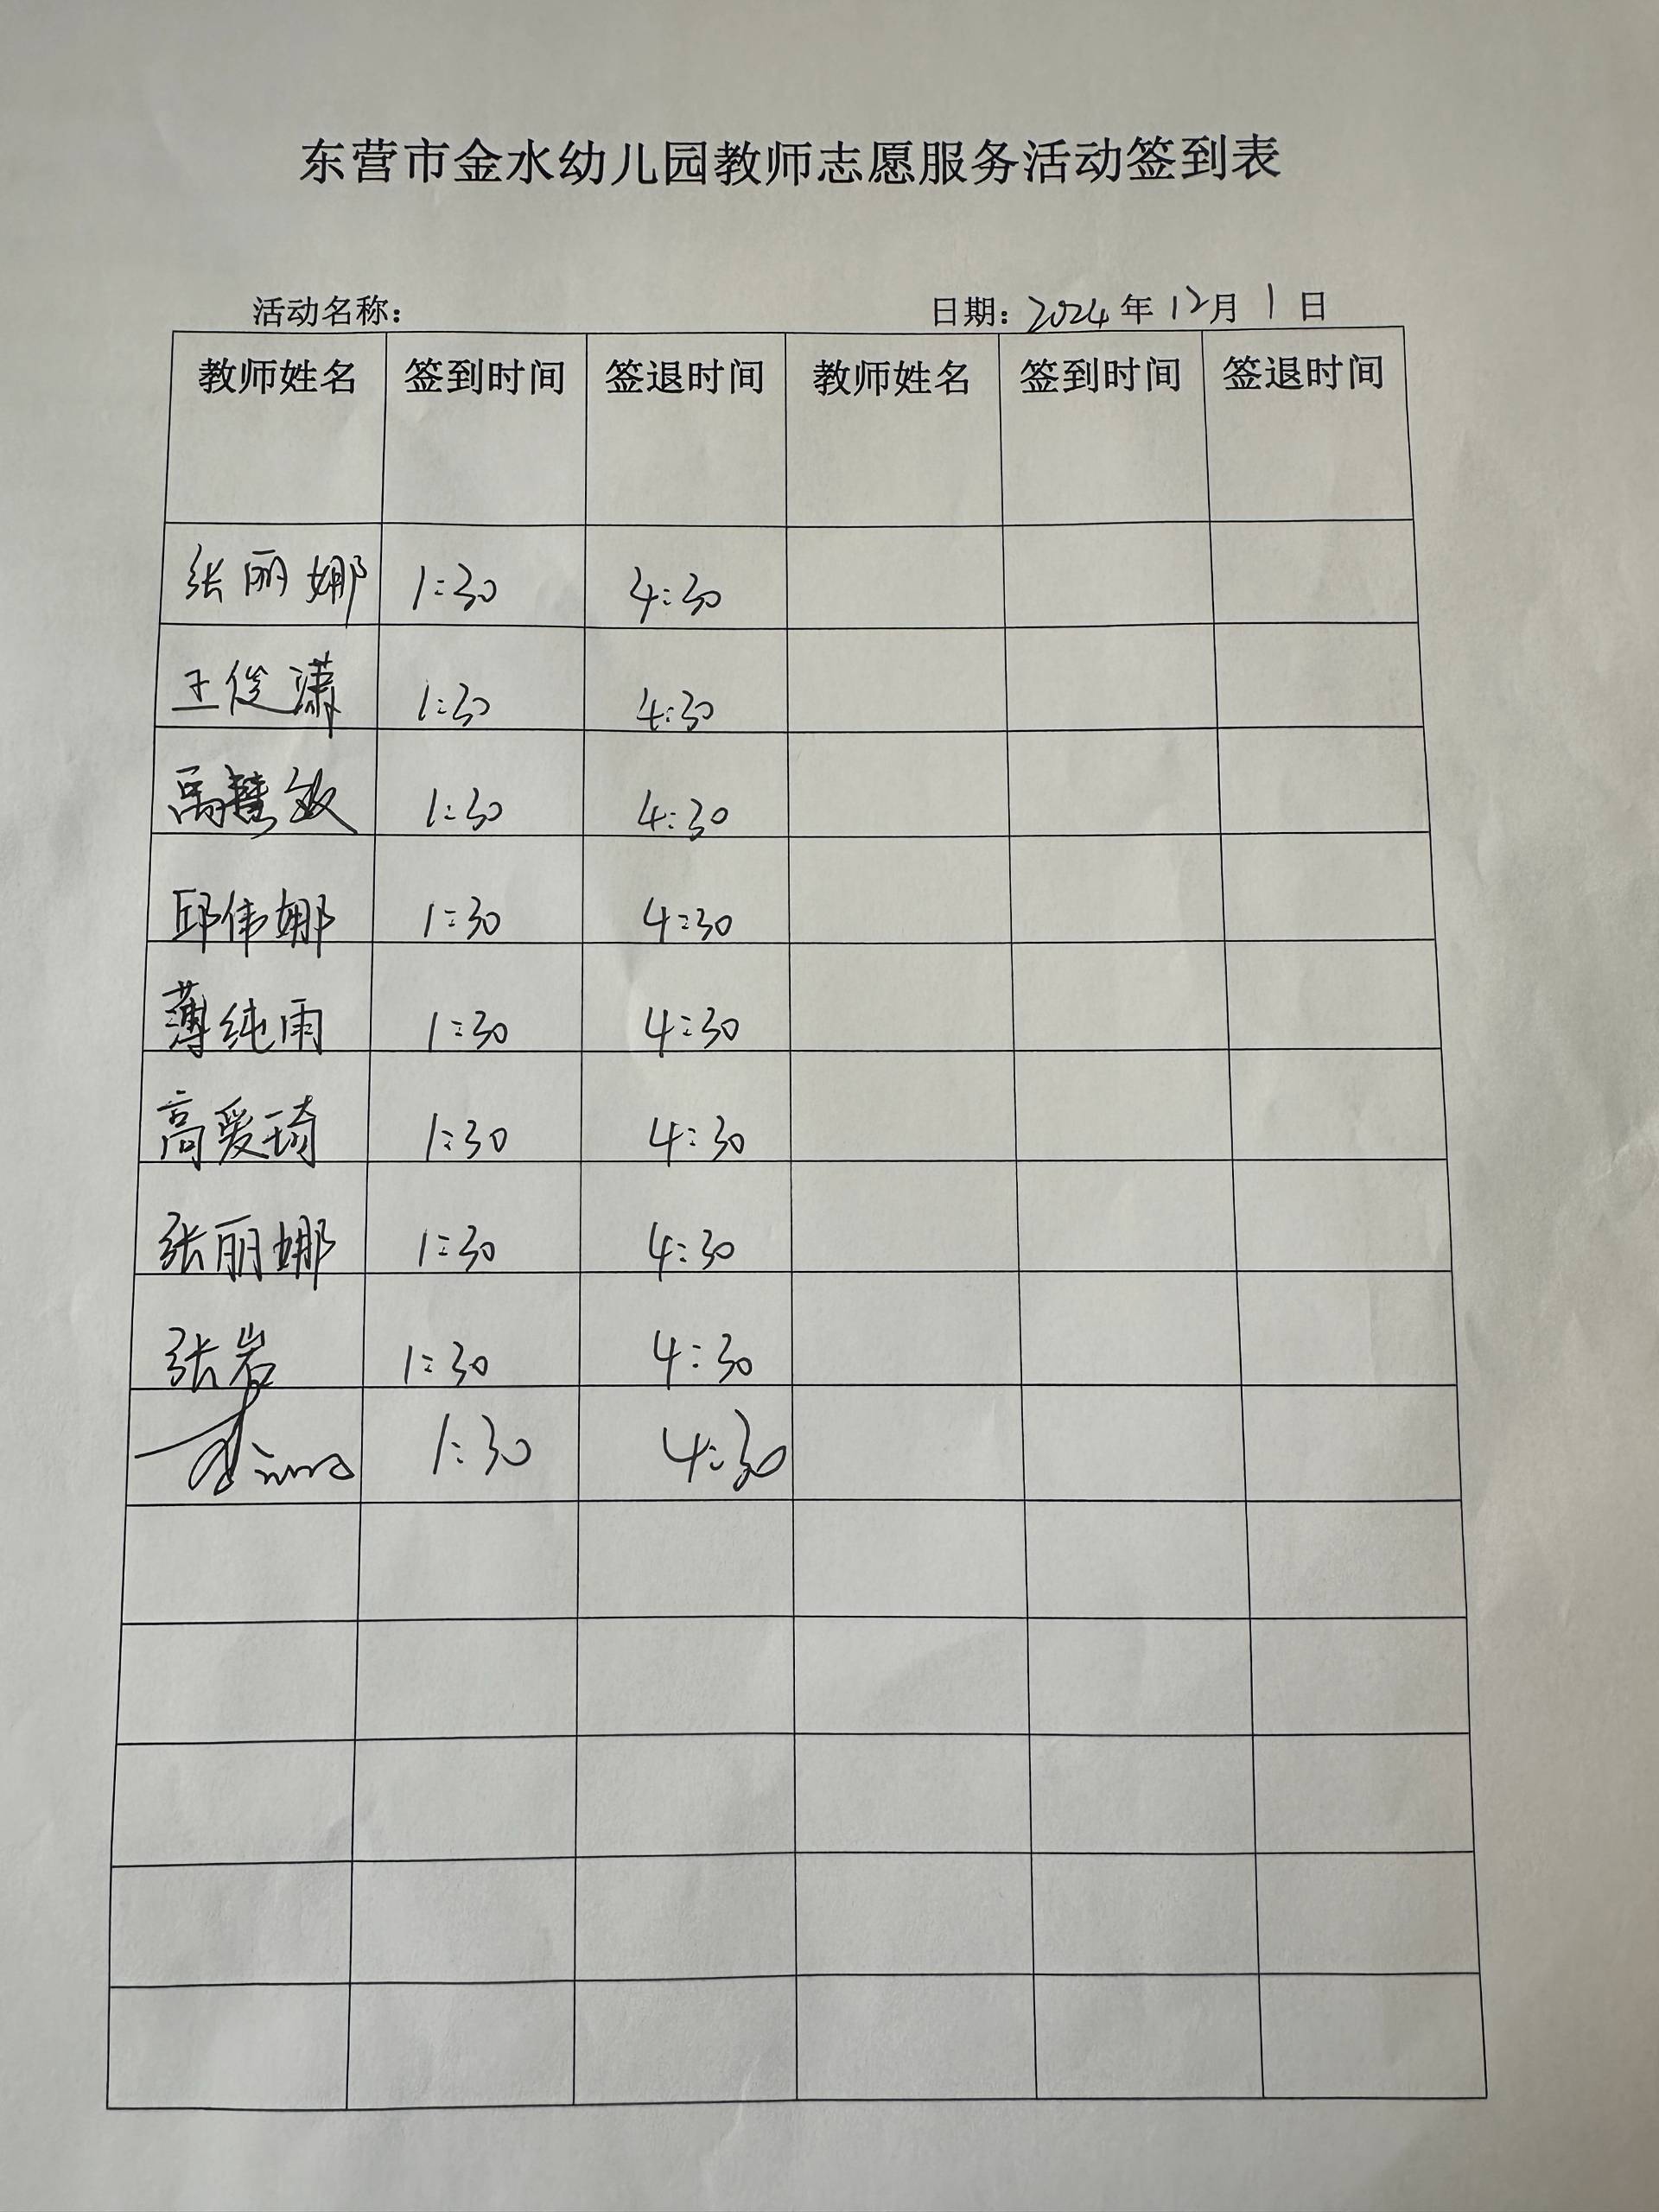 东营市金水幼儿园教师志愿服务活动签到表
活动名称： 日期：2024年12月1日
教师姓名 签到时间 签退时间 教师姓名 签到时间 签退时间
张丽娜 1:30 4:30
王俊潇 1:30 4:30
高慧敏 1:30 4:30
邱伟娜 1:30 4:30
薄纯雨 1:30 4:30
高爱琦 1:30 4:30
张丽娜 1:30 4:30
张岩 1:30 4:30
1:30 4:30